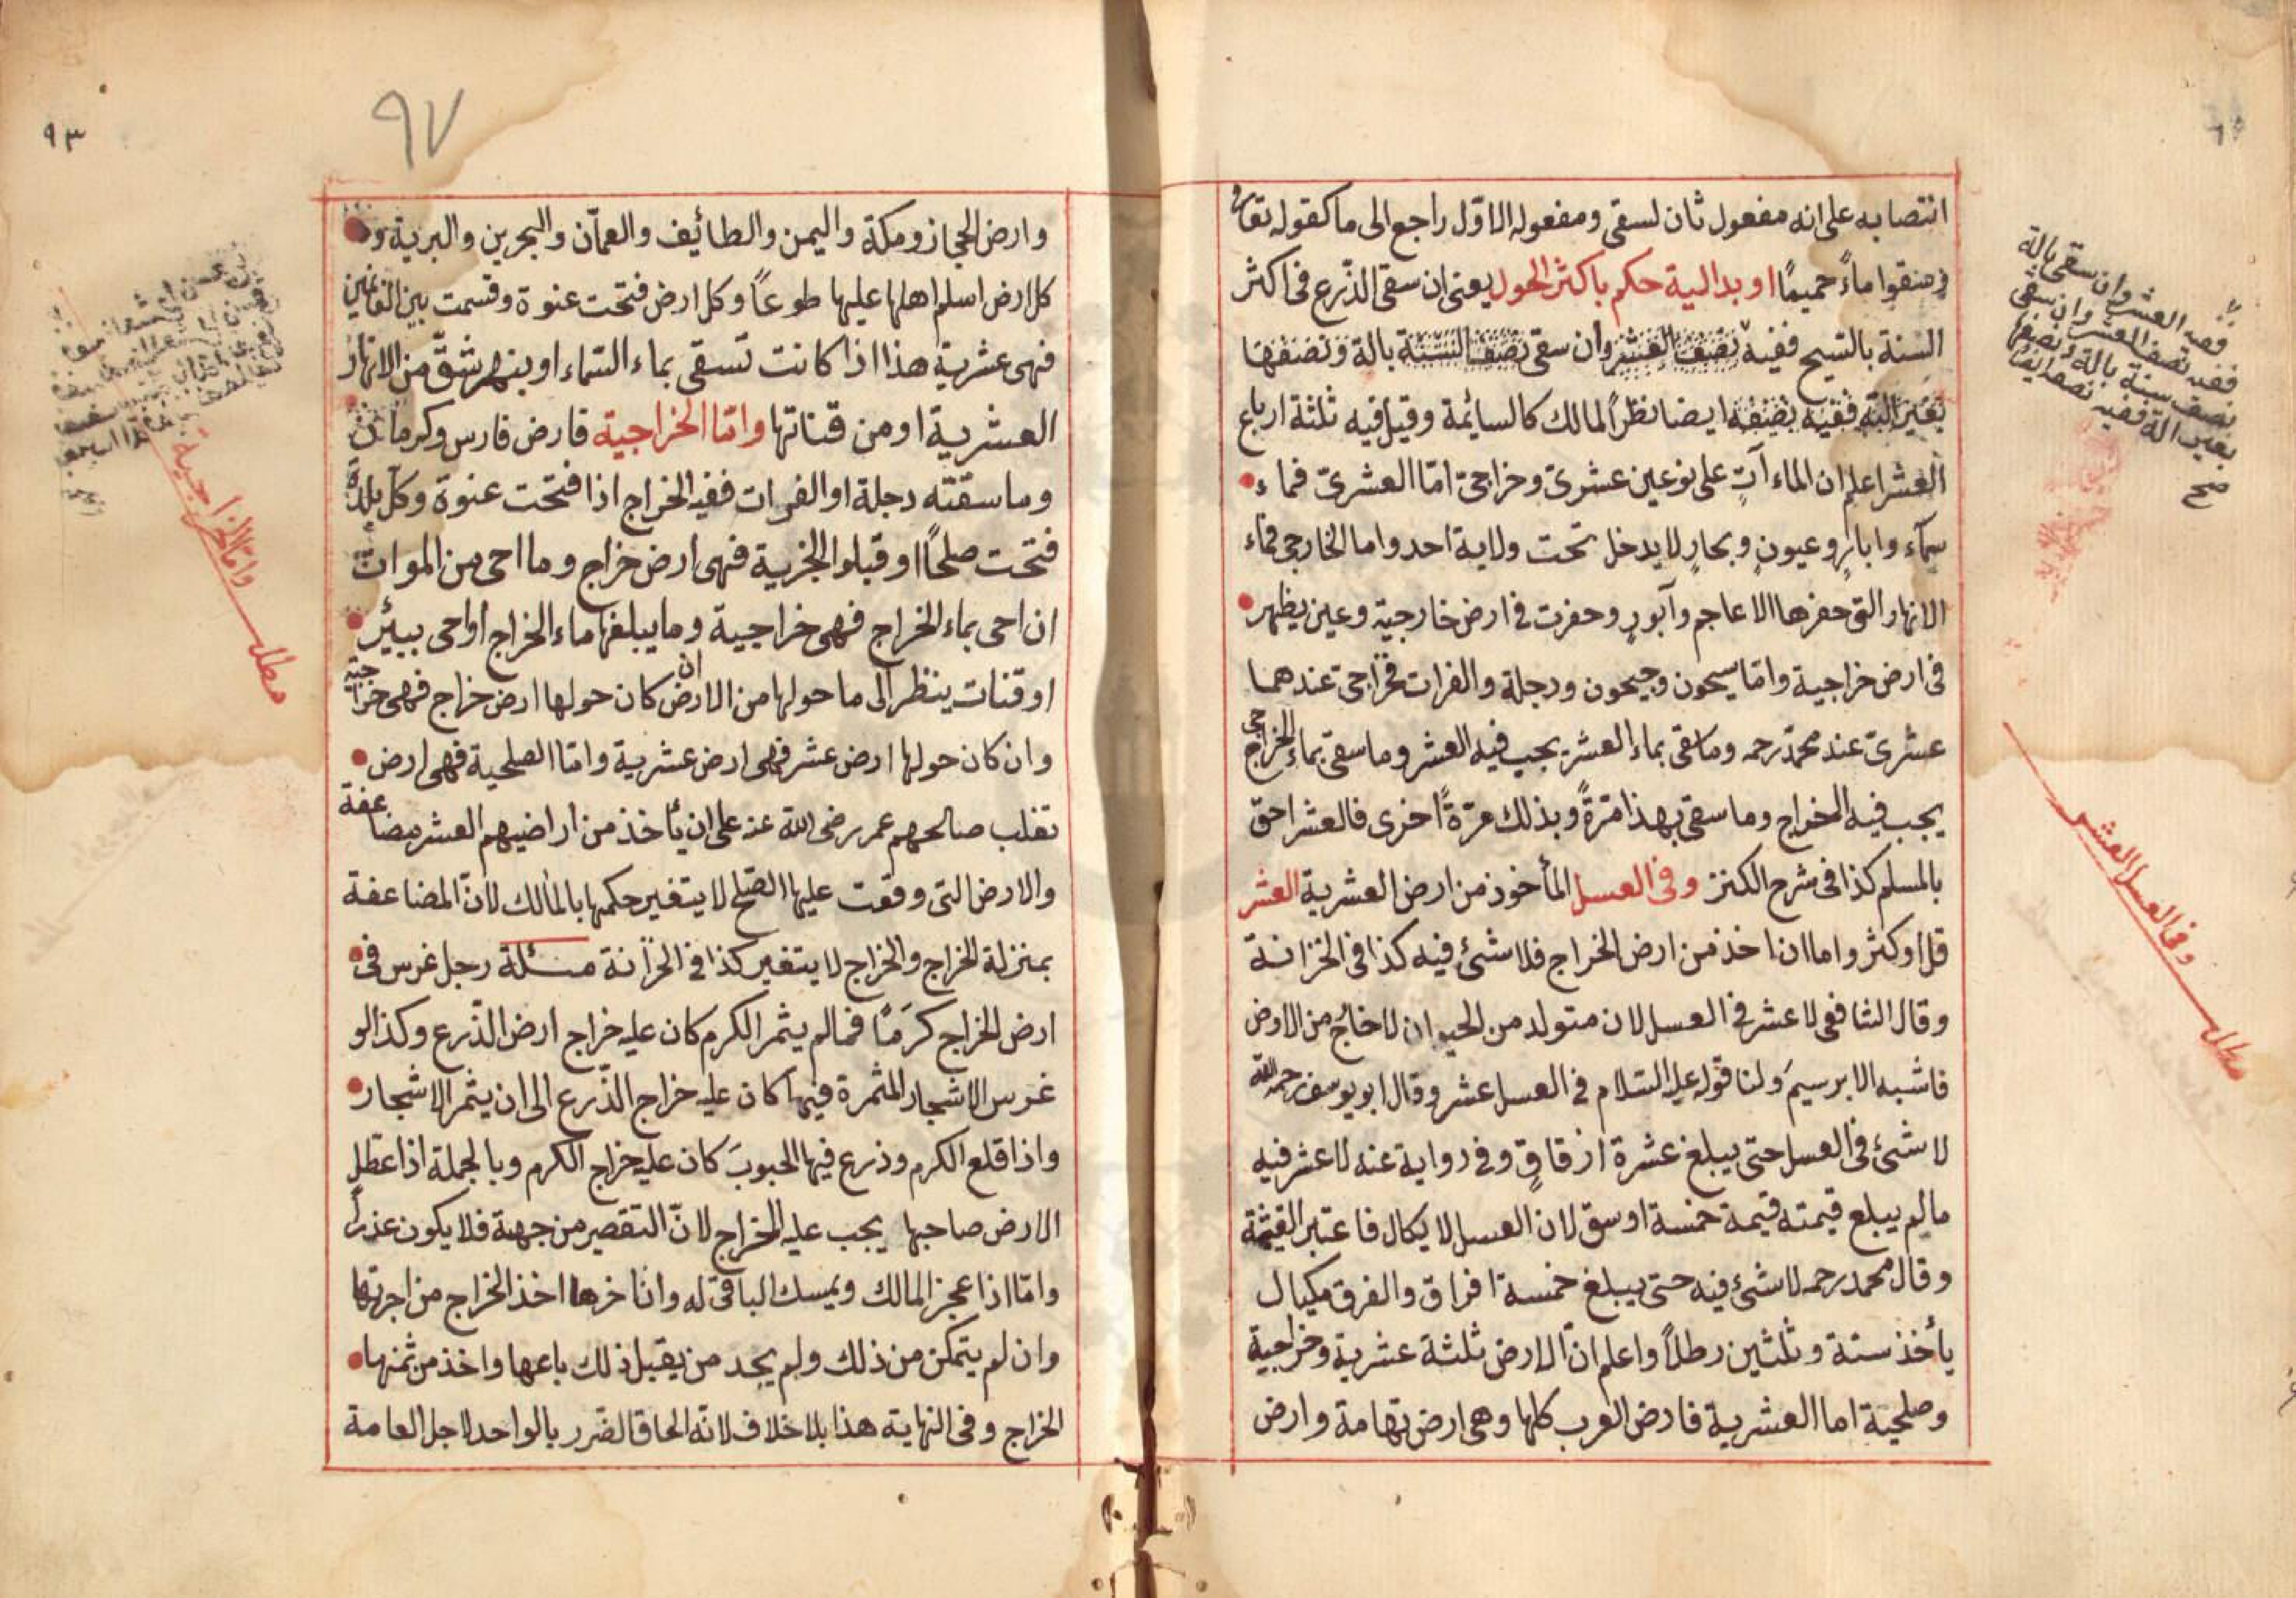 انتصابه على انه مفعول ثان لسقى ومفعوله الاوّل راجع الى ما كقوله تعالى
وسقوا ماءً حميمًا او بدالية حكم باكثر الحول يعنى ان سقى الذّرع فى اكثر
السنة بالسيح ففيه نصف العشر وان سقى نصف السّنة بالة ونصفها
بغير الة ففيه نصفه ايضا نظرًا لمالك كالسائمة وقيل فيه ثلثة ارباع
العشر اعلم ان الماء آتٍ على نوعين عشرىّ وخراجىّ امّا العشرىّ فماء
سمآء وابارٍ وعيونٍ وبحارٍ لا يدخل تحت ولاية احد واما الخارجى فماء
الانهار التى حفرها الاعاجم وآبورٍ وحفرت فى ارض خارجية وعين يظهر
فى ارض خراجية وامّا سيحون وجيحون ودجلة والفرات فخراجى عندهما
عشرىّ عند محمّد رحمه وما سقى بماء العشر يجب فيه العشر وما سقى بماء الخراجى
يجب فيه الخراج وما سقى بهذا مرّةً وبذلك مرّةً اخرى فالعشر احق
بالمسلم كذا فى شرح الكنز وفى العسل المأخوذ من ارض العشرية العشر
قلّ او كثر واما ان اخذ من ارض الخراج فلا شئ فيه كذا فى الخزانة
وقال الشافعى لا عشر فى العسل لان متولد من الحيوان لا خارج من الارض
فاشبه الابرسيم ولنا قوله عليه السّلام فى العسل عشر وقال ابو يوسف رحمه الله
لا شئ فى العسل حتى يبلغ عشرة ازقاقٍ وفى رواية عنه لا عشر فيه
مالم يبلغ قيمته قيمة خمسة اوسق لان العسل لا يكال فاعتبر القيمة
وقال محمد رحمه لا شئ فيه حتى يبلغ خمسة افراق والفرق مكيال
يأخذ ستة وثلثين رطلاً واعلم انّ الارض ثلثة عشرية وخراجية
وصلحية اما العشرية فارض العرب كلها وهى ارض تهامة وارض
ففيه العشر وان سقى بالة
ففيه نصف العشر وان سقى
نصف سنة بالة ونصفها
بغير الة ففيه نصفه ايضا
صح
وفى العسل العشر
مطلب
٩٣
٩٧
وارض الحجاز ومكة واليمن والطائف والعمّان والبحرين والبرية و
كل ارض اسلم اهلها عليها طوعًا وكل ارض فتحت عنوة وقسمت بين الغانمين
فهى عشرية هذا اذا كانت تسقى بماء السّماء او بنهر شقّ من الانهار
العشرية او من قناتها وامّا الخراجية فارض فارس وكرمان
وما سقته دجلة او الفرات ففيه الخراج اذا فتحت عنوة وكلّ بلدة
فتحت صلحًا او قبلوا الجزية فهى ارض خراج وما احى من الموات
ان احى بماء الخراج فهى خراجية وما يبلغها ماء الخراج او احى ببئر
او قنات ينظر الى ما حولها من الارض ان كان حولها ارض خراج فهى خراجية
وان كان حولها ارض عشر فهى ارض عشرية وامّا الصلحية فهى ارض
تغلب صالحهم عمر رضى الله عنه على ان يأخذ من اراضيهم العشر مضاعفة
والارض التى وقعت عليها الصّلح لا يتغير حكمها بالمالك لانّ المضاعفة
بمنزلة الخراج والخراج لا يتغير كذا فى الخزانة مسئلة رجل غرس فى
ارض الخراج كرَمًا فمالم يثمر الكرم كان عليه خراج ارض الذّرع وكذا لو
غرس الاشجار المثمرة فيها كان عليه خراج الذّرع الى ان يثمر الاشجار
واذا قلع الكرم وذرع فيها الحبوبَ كان عليه خراج الكرم وبالجملة اذا عطّل
الارض صاحبها يجب عليه الخراج لانّ التقصير من جهته فلا يكون عذرًا
وامّا اذا عجز المالك ويمسك الباقى له وان اخرها اخذ الخراج من اجرتها
وان لم يتمكن من ذلك ولم يجد من يقبل ذلك باعها واخذ من ثمنها
الخراج وفى النهاية هذا بلا خلاف لانه الحاق الضرر بالواحد لاجل العامة
وامّا الخراجية
مطلب